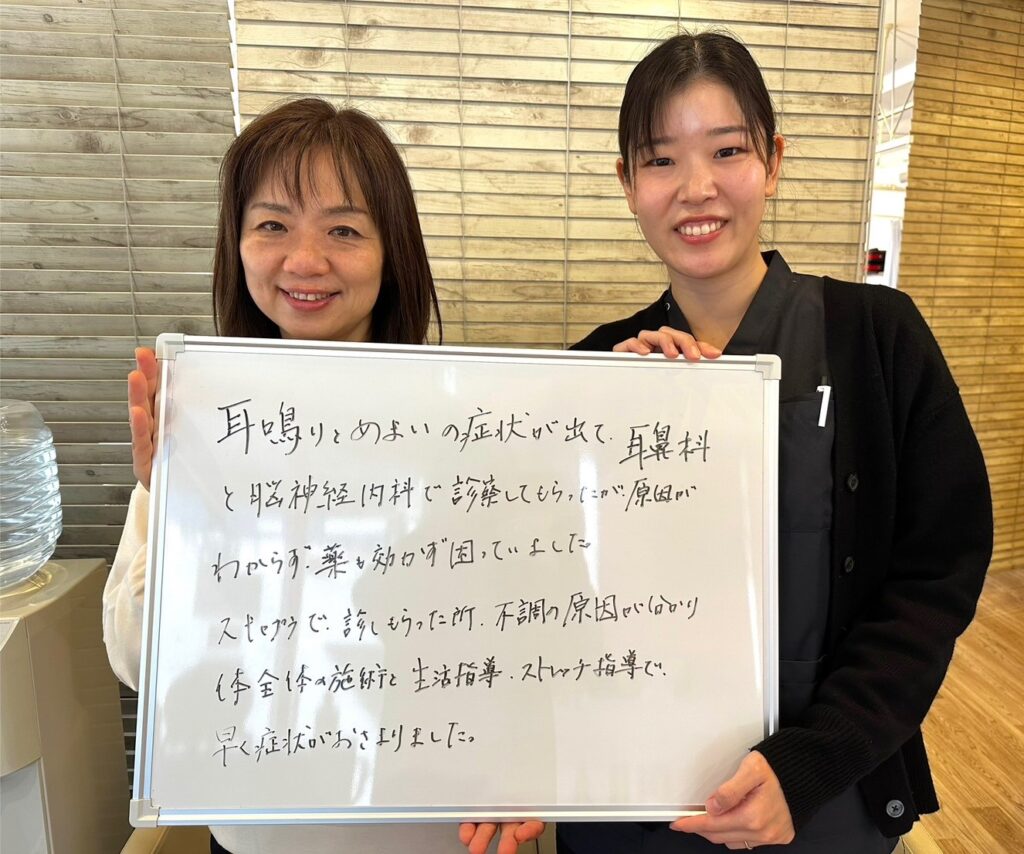 耳鳴りとめまいの症状が出て、耳鼻科
と脳神経内科で診察してもらったが、原因が
わからず、薬も効かず困っていました
スキップラで、診てもらった所、不調の原因が分かり
体全体の施術と生活指導、ストレッチ指導で、
早く症状がおさまりました。